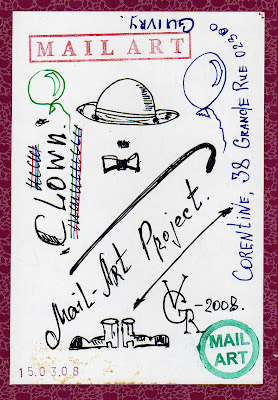 MAIL ART
"CLOWN."
CORENTINE, 38 GRANDE RUE 02300
GUIVRY.
Mail-Art Project.
-2008.
MAIL
ART
15.03.08